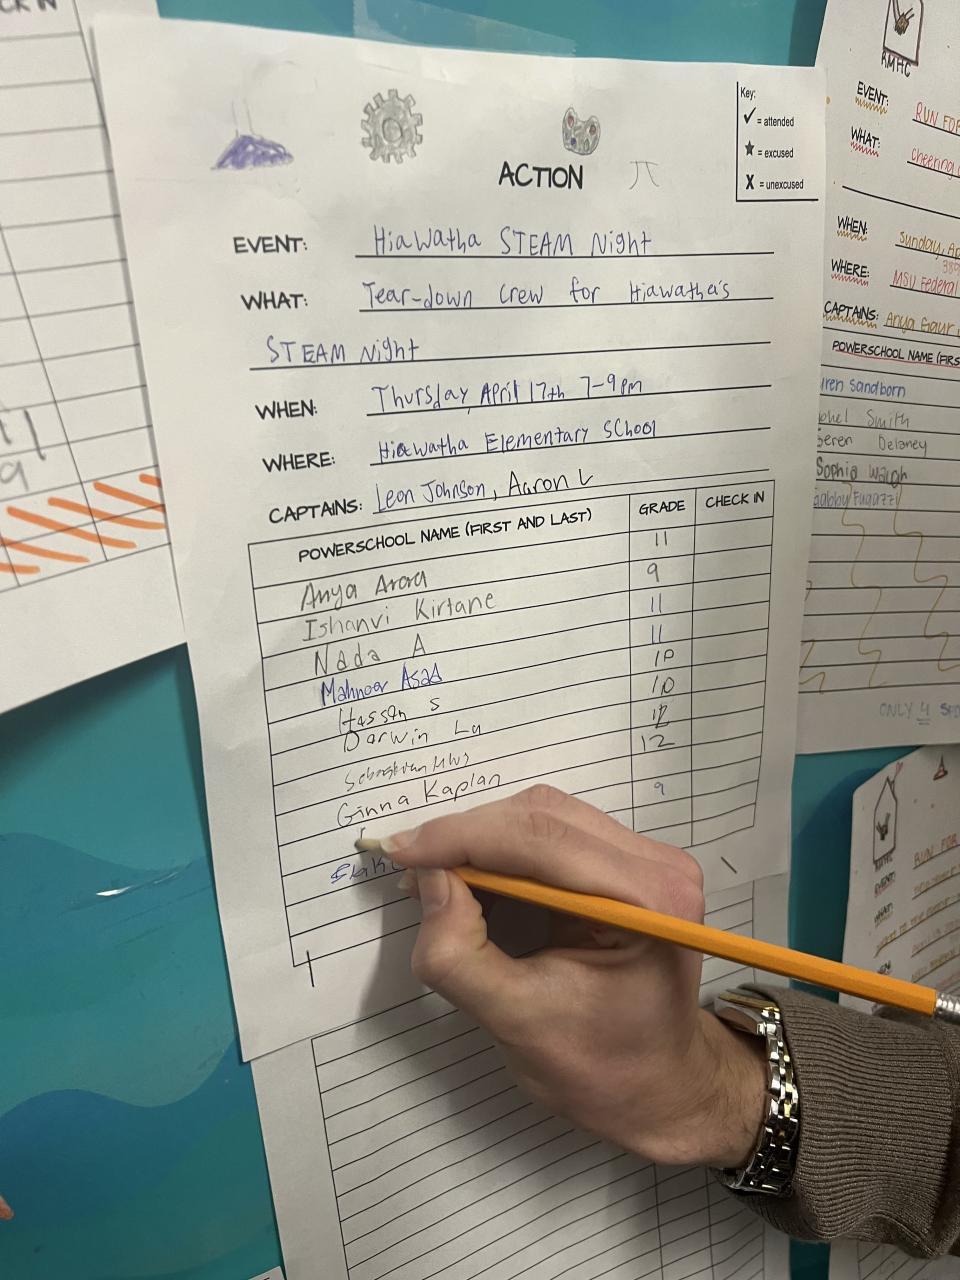 CK IN
9
Key:
✓ = attended
★ = excused
X = unexcused
ACTION
π
EVENT: Hiawatha STEAM Night
WHAT: Tear-down crew for Hiawatha's
STEAM Night
WHEN: Thursday, April 17th 7-9pm
WHERE: Hiawatha Elementary School
CAPTAINS: Leon Johnson, Aaron L
POWERSCHOOL NAME (FIRST AND LAST) GRADE CHECK IN
Anya Arora 11
Ishanvi Kirtane 9
Nada A 11
Mahnoor Asad 11
Hassan S 10
Darwin La 10
12
Ginna Kaplan 12
9
RMHC
EVENT: RUN FOR
WHAT: Cheering
WHEN: Sunday,
WHERE: MSU Federal
CAPTAINS: Anya Gaur,
POWERSCHOOL NAME (FIRS
Sandborn
Smith
Delaney
Sophia Waugh
Fugazzi
ONLY 4
RMHC
EVENT: RUN FOR
WHAT: